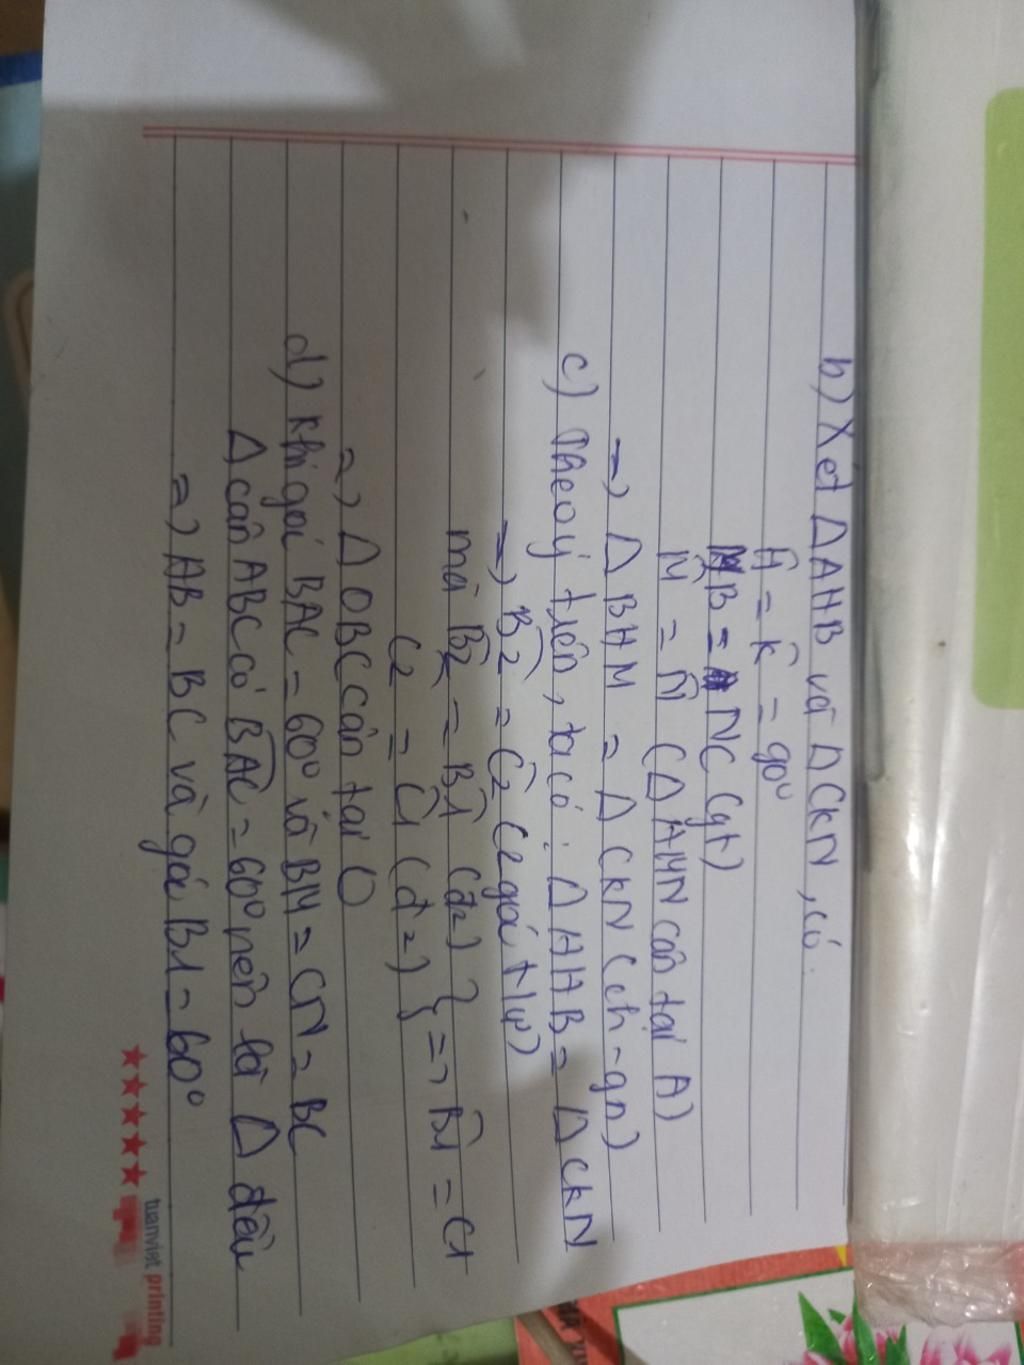 b) Xét Δ AHB và Δ CKN, có
Ĥ = K̂ = 90°
MB = NC (gt)
M̂ = N̂ (Δ AMN cân tại A)
=) Δ BHM = Δ CKN (ch-gn)
c) Theo ý trên, ta có: Δ AHB = Δ CKN
=) B2 = C2 (2 góc t/ứ)
mà B2 = B1 (đ²) } => B1 = C1
C2 = C1 (đ²) }
=) Δ OBC cân tại O
d) Khi góc BAC = 60° và BM = CN = BC
Δ cân ABC có BAC = 60° nên là Δ đều
=) AB = BC và góc B1 = 60°
tuanviet printing